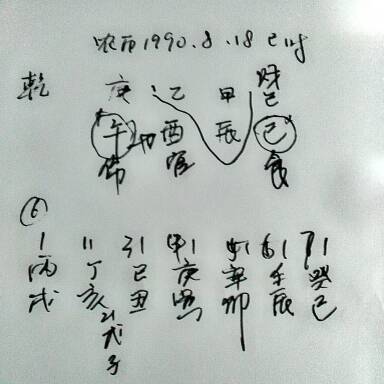 农历1990.8.18 巳时
乾 庚 乙 甲 财己
午 酉 辰 巳
伤 官 食
6
1 11 21 41 61 71
丙 丁 己 庚 辛 壬 癸
戌 亥 丑 寅 卯 辰 巳
戊子